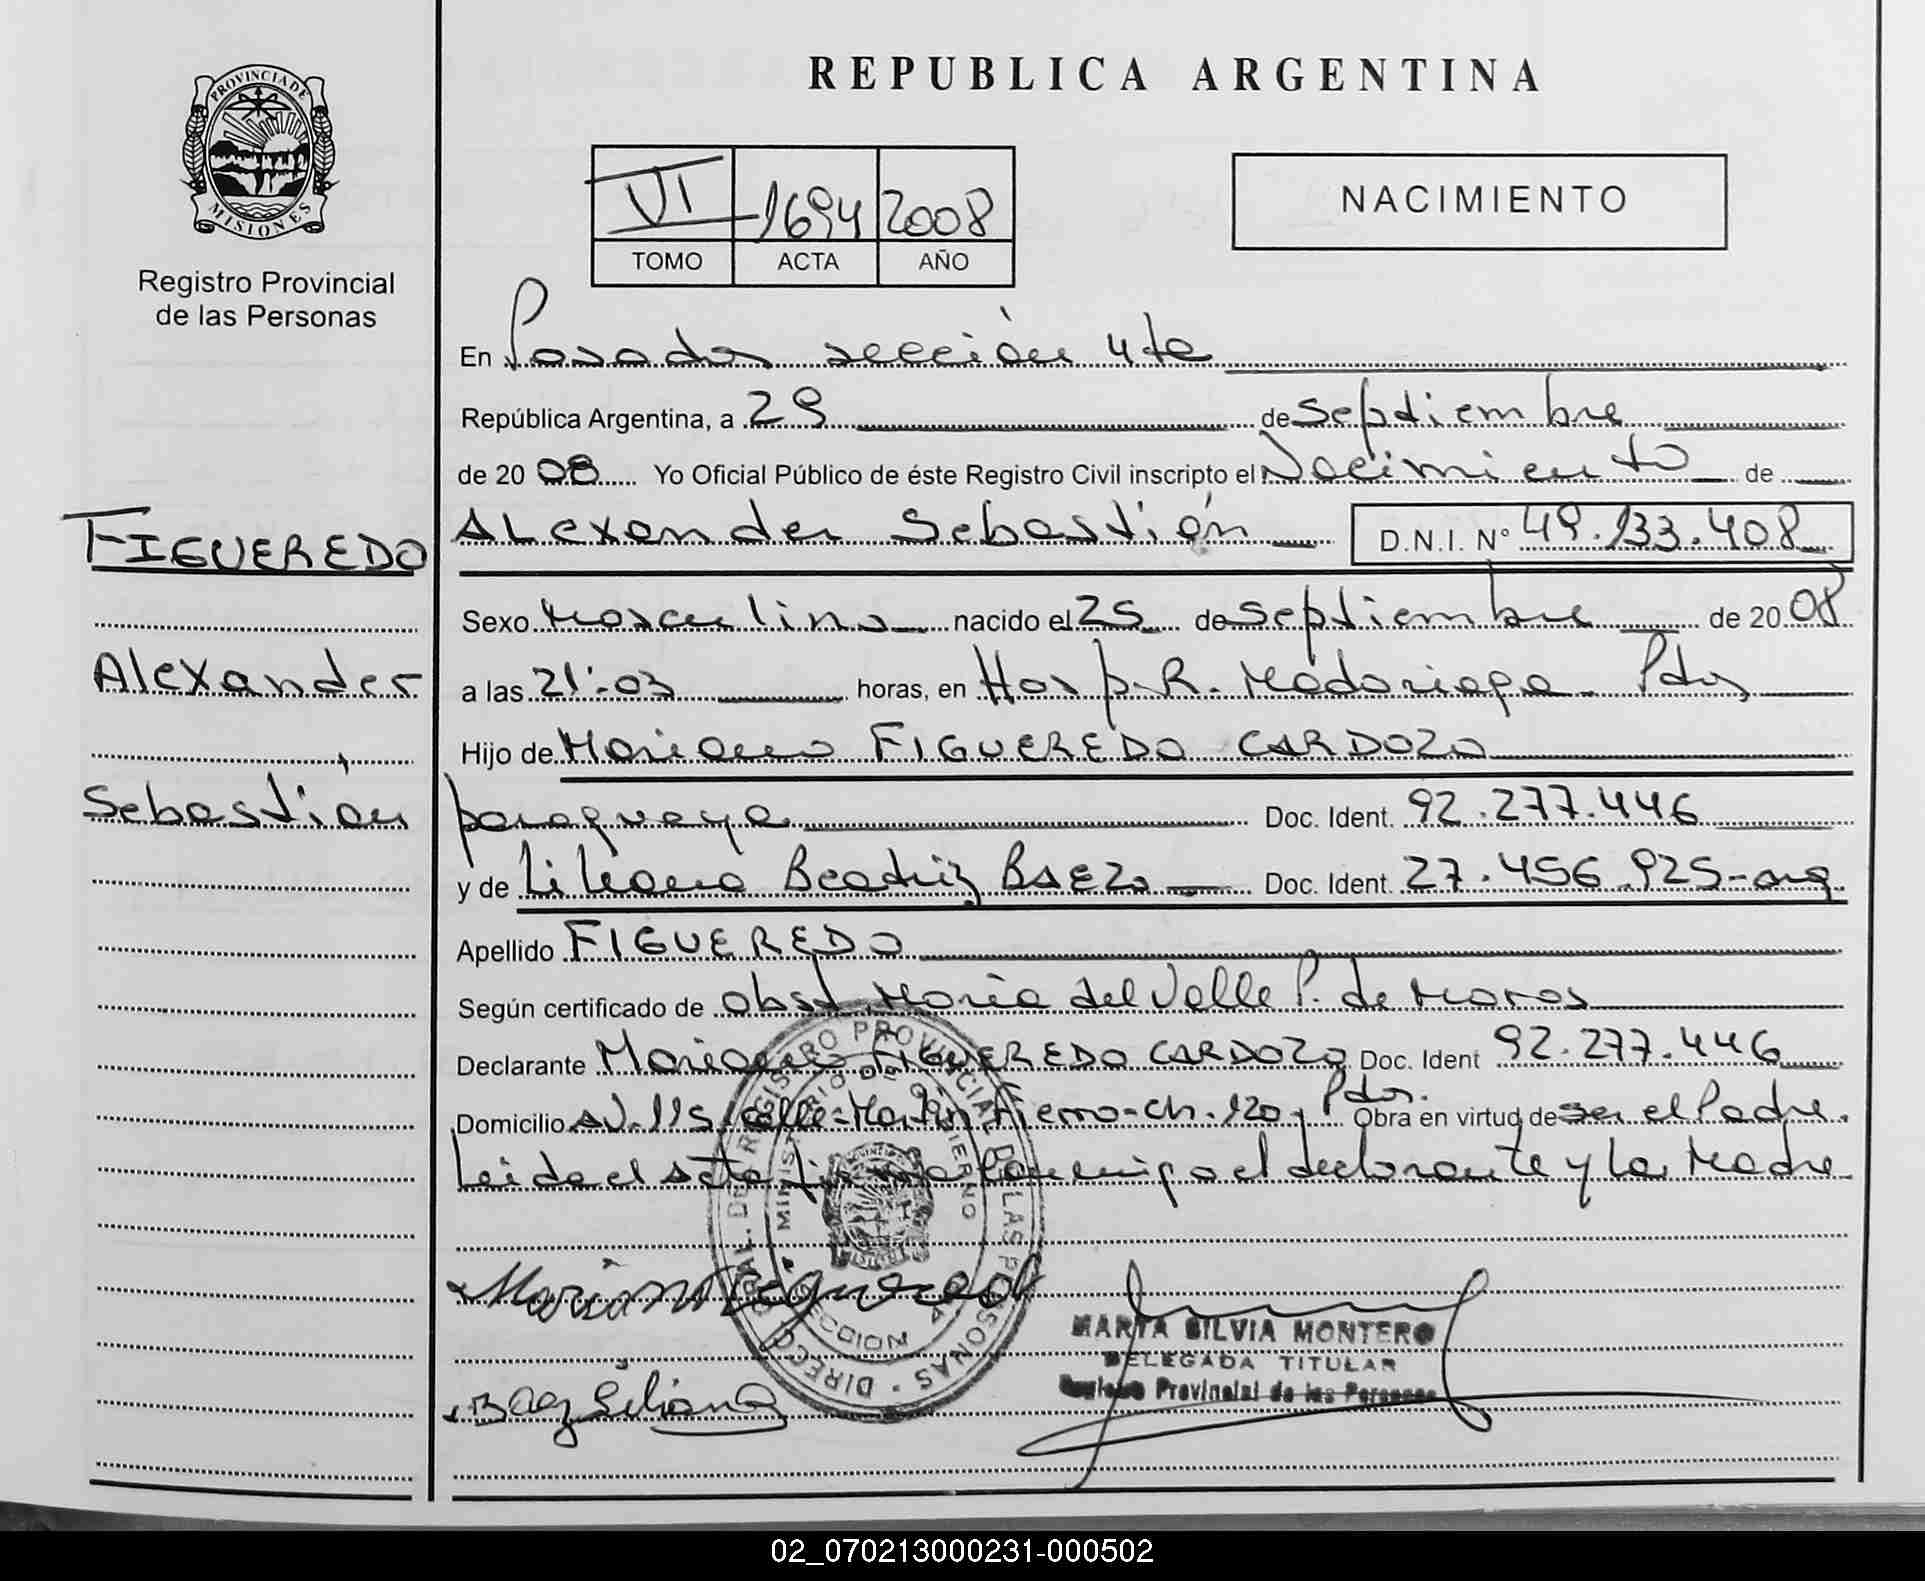 REPUBLICA ARGENTINA
PROVINCIA DE MISIONES
Registro Provincial
de las Personas
VI 1694 2008
TOMO ACTA AÑO
NACIMIENTO
En Posadas sección 4ta
República Argentina, a 29 de Septiembre
de 2008 Yo Oficial Público de éste Registro Civil inscripto el Nacimiento de
Alexander Sebastián D.N.I. N° 49.133.408
FIGUEREDO
Alexander
Sebastián
Sexo Masculino nacido el 25 de Septiembre de 2008
a las 21:03 horas, en Hosp. R. Madariaga - Pdas
Hijo de Mariano FIGUEREDO CARDOZO
paraguaya Doc. Ident. 92.277.446
y de Liliana Beatriz BAEZ Doc. Ident. 27.456.925-arg
Apellido FIGUEREDO
Según certificado de obst María del Valle P. de Maros
Declarante Mariano FIGUEREDO CARDOZO Doc. Ident 92.277.446
Domicilio AV.115 calle-Martín Fierro-ch.120 Pdas. Obra en virtud de ser el Padre.
Leida el acta firma conmigo el declarante y la Madre
Mariano Figueredo
Baez Liliana
DIRECC. GRAL. DEL REGISTRO PROVINCIAL DE LAS PERSONAS
MINISTERIO DE GOBIERNO
MARTA SILVIA MONTERO
DELEGADA TITULAR
Registro Provincial de las Personas
02_070213000231-000502